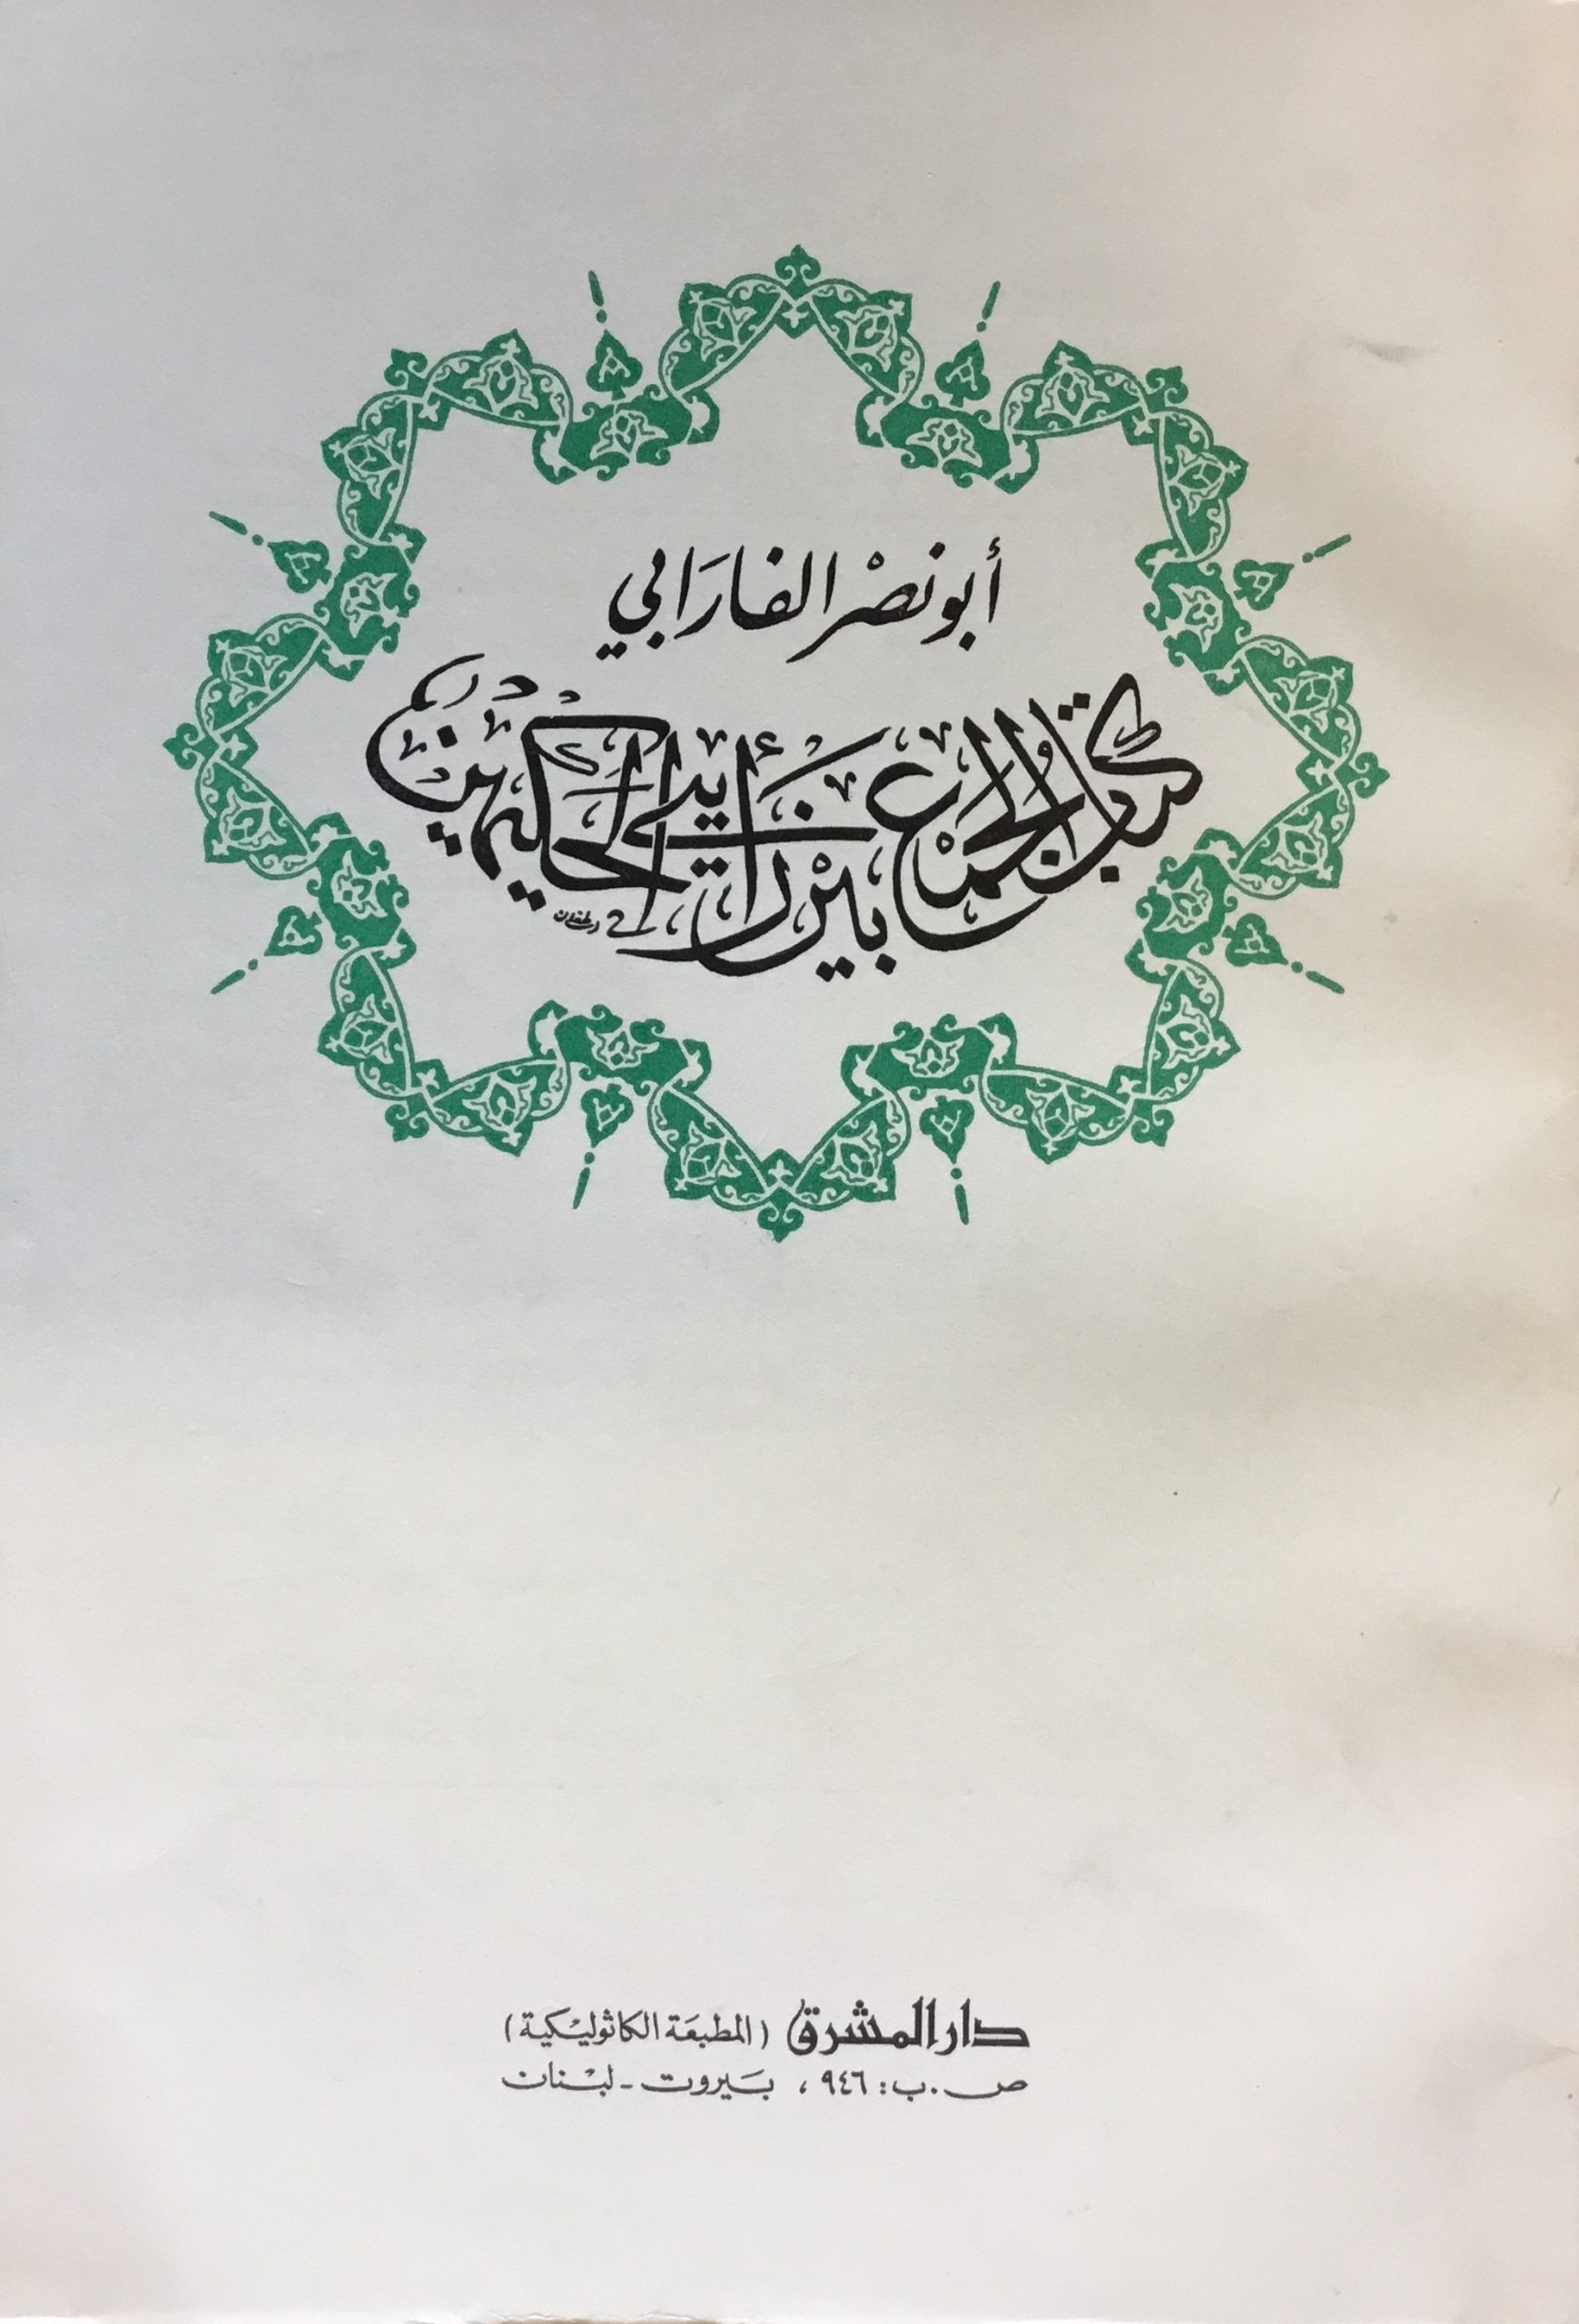 أبو نصْر الفارَابي
كتاب الجمع بين رأيي الحكيمين
دار المشرق (المطبعَة الكاثوليْكية)
ص.ب: ٩٤٦، بَيروت - لبْنان